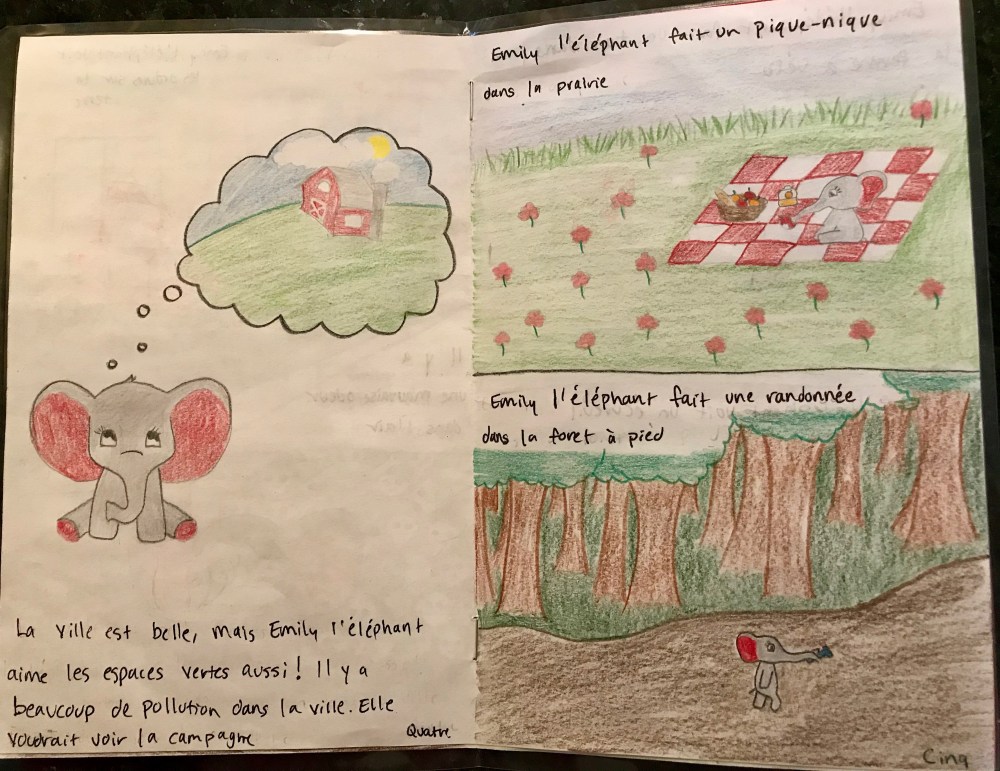 La ville est belle, mais Emily l'éléphant
aime les espaces vertes aussi! Il y a
beaucoup de pollution dans la ville. Elle
voudrait voir la campagne
Quatre
Emily l'éléphant fait un pique-nique
dans la prairie
Emily l'éléphant fait une randonnée
dans la foret à pied
Cinq